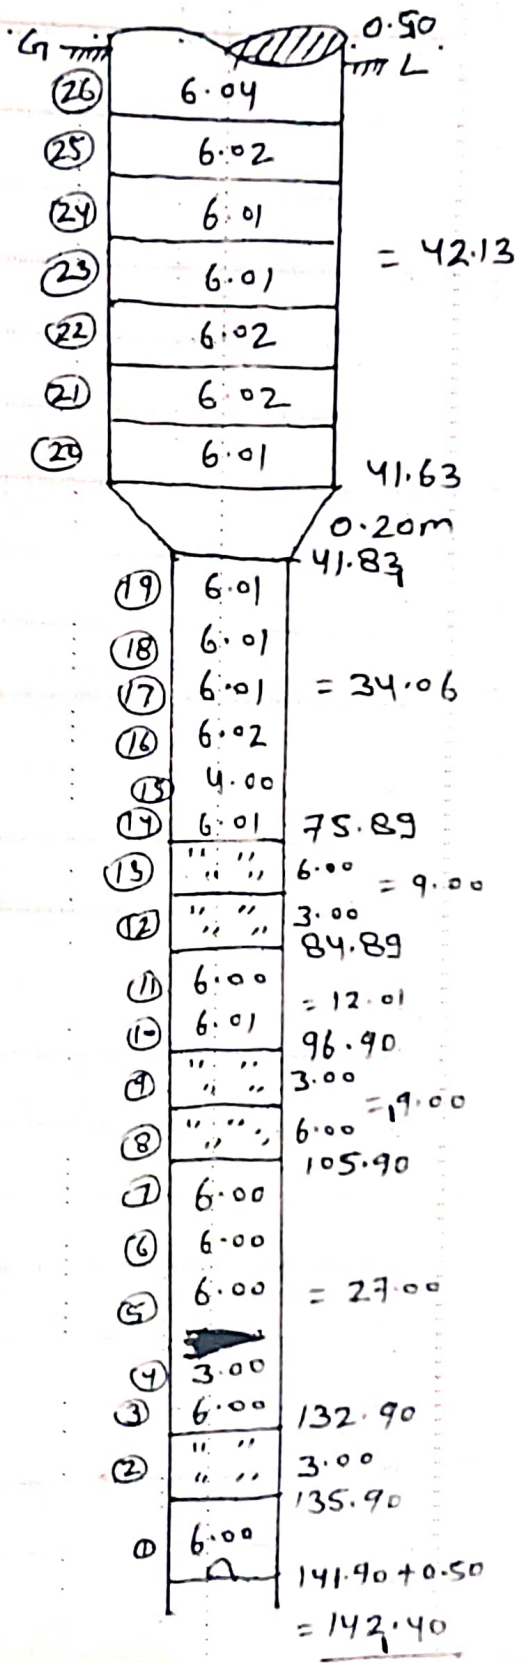 G 0.50 L
26 6.04
25 6.02
24 6.01
= 42.13
23 6.01
22 6.02
21 6.02
20 6.01
41.63
0.20m
41.83
19 6.01
18 6.01
17 6.01 = 34.06
16 6.02
15 4.00
14 6.01 75.89
13 6.00 = 9.00
12 3.00
84.89
11 6.00
= 12.01
10 6.01 96.90
9 3.00
= 9.00
8 6.00
105.90
7 6.00
6 6.00
5 6.00 = 27.00
4 3.00
3 6.00 132.90
2 3.00
135.90
1 6.00
141.90 + 0.50
= 142.40